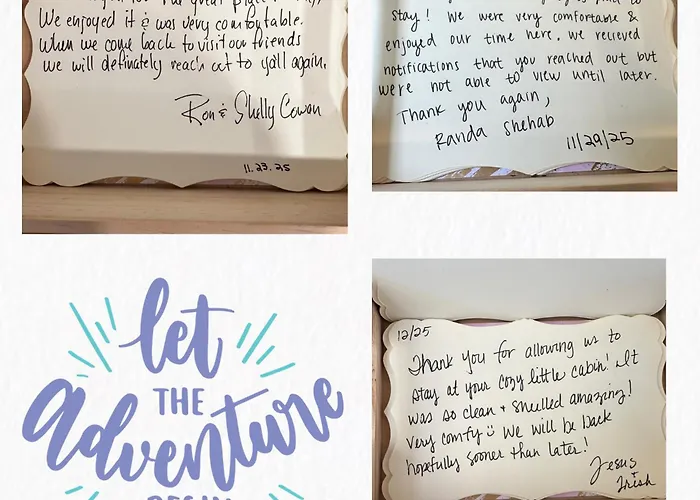 We enjoyed it & was very comfortable.
When we come back to visit our friends
we will definately reach out to yall again.
Ron & Shelly Cowan
11.23.25
stay! We were very comfortable &
enjoyed our time here. We recieved
notifications that you reached out but
were not able to view until later.
Thank you again,
Randa Shehab
11/29/25
let
THE
Adventure
12/25
Thank you for allowing us to
stay at your cozy little cabin! It
was so clean + smelled amazing!
Very comfy We will be back
hopefully sooner than later!
Jesus
+
Irish